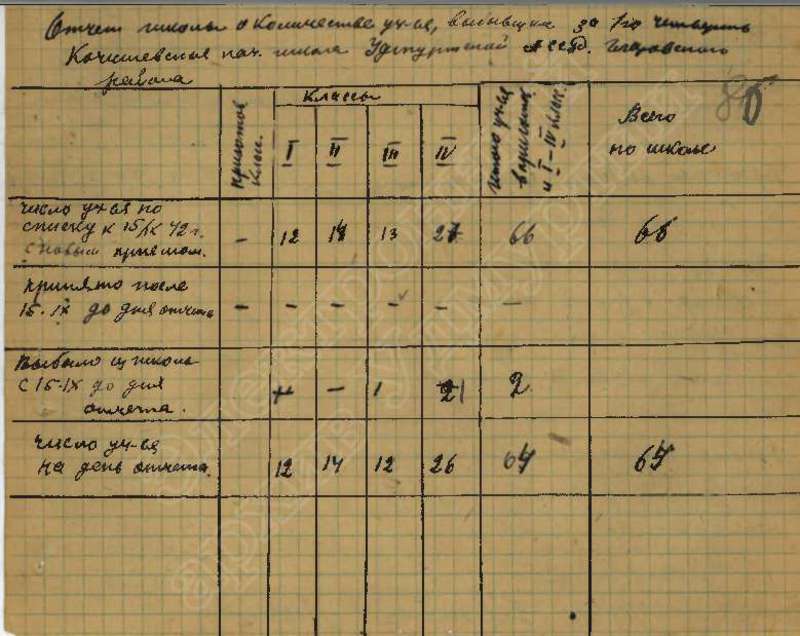 Отчет школы о количестве уч-ся, выбывших за 1ю четверть
Кочишевская нач. школа Удмуртской АССР. Глазовского
района
80
Классы
приготов клас.
I II III IV
Итого уч-ся в приготов. и I–IV клас.
Всего
по школе
Число уч-ся по
списку к 15/IX 42 г.
с новым приемом. – 12 14 13 27 66 66
Принято после
15.IX до дня отчета – – – – – –
Выбыло из школы
с 15.IX до дня
отчета. – 1 1 2
Число уч-ся
на день отчета. 12 14 12 26 64 64